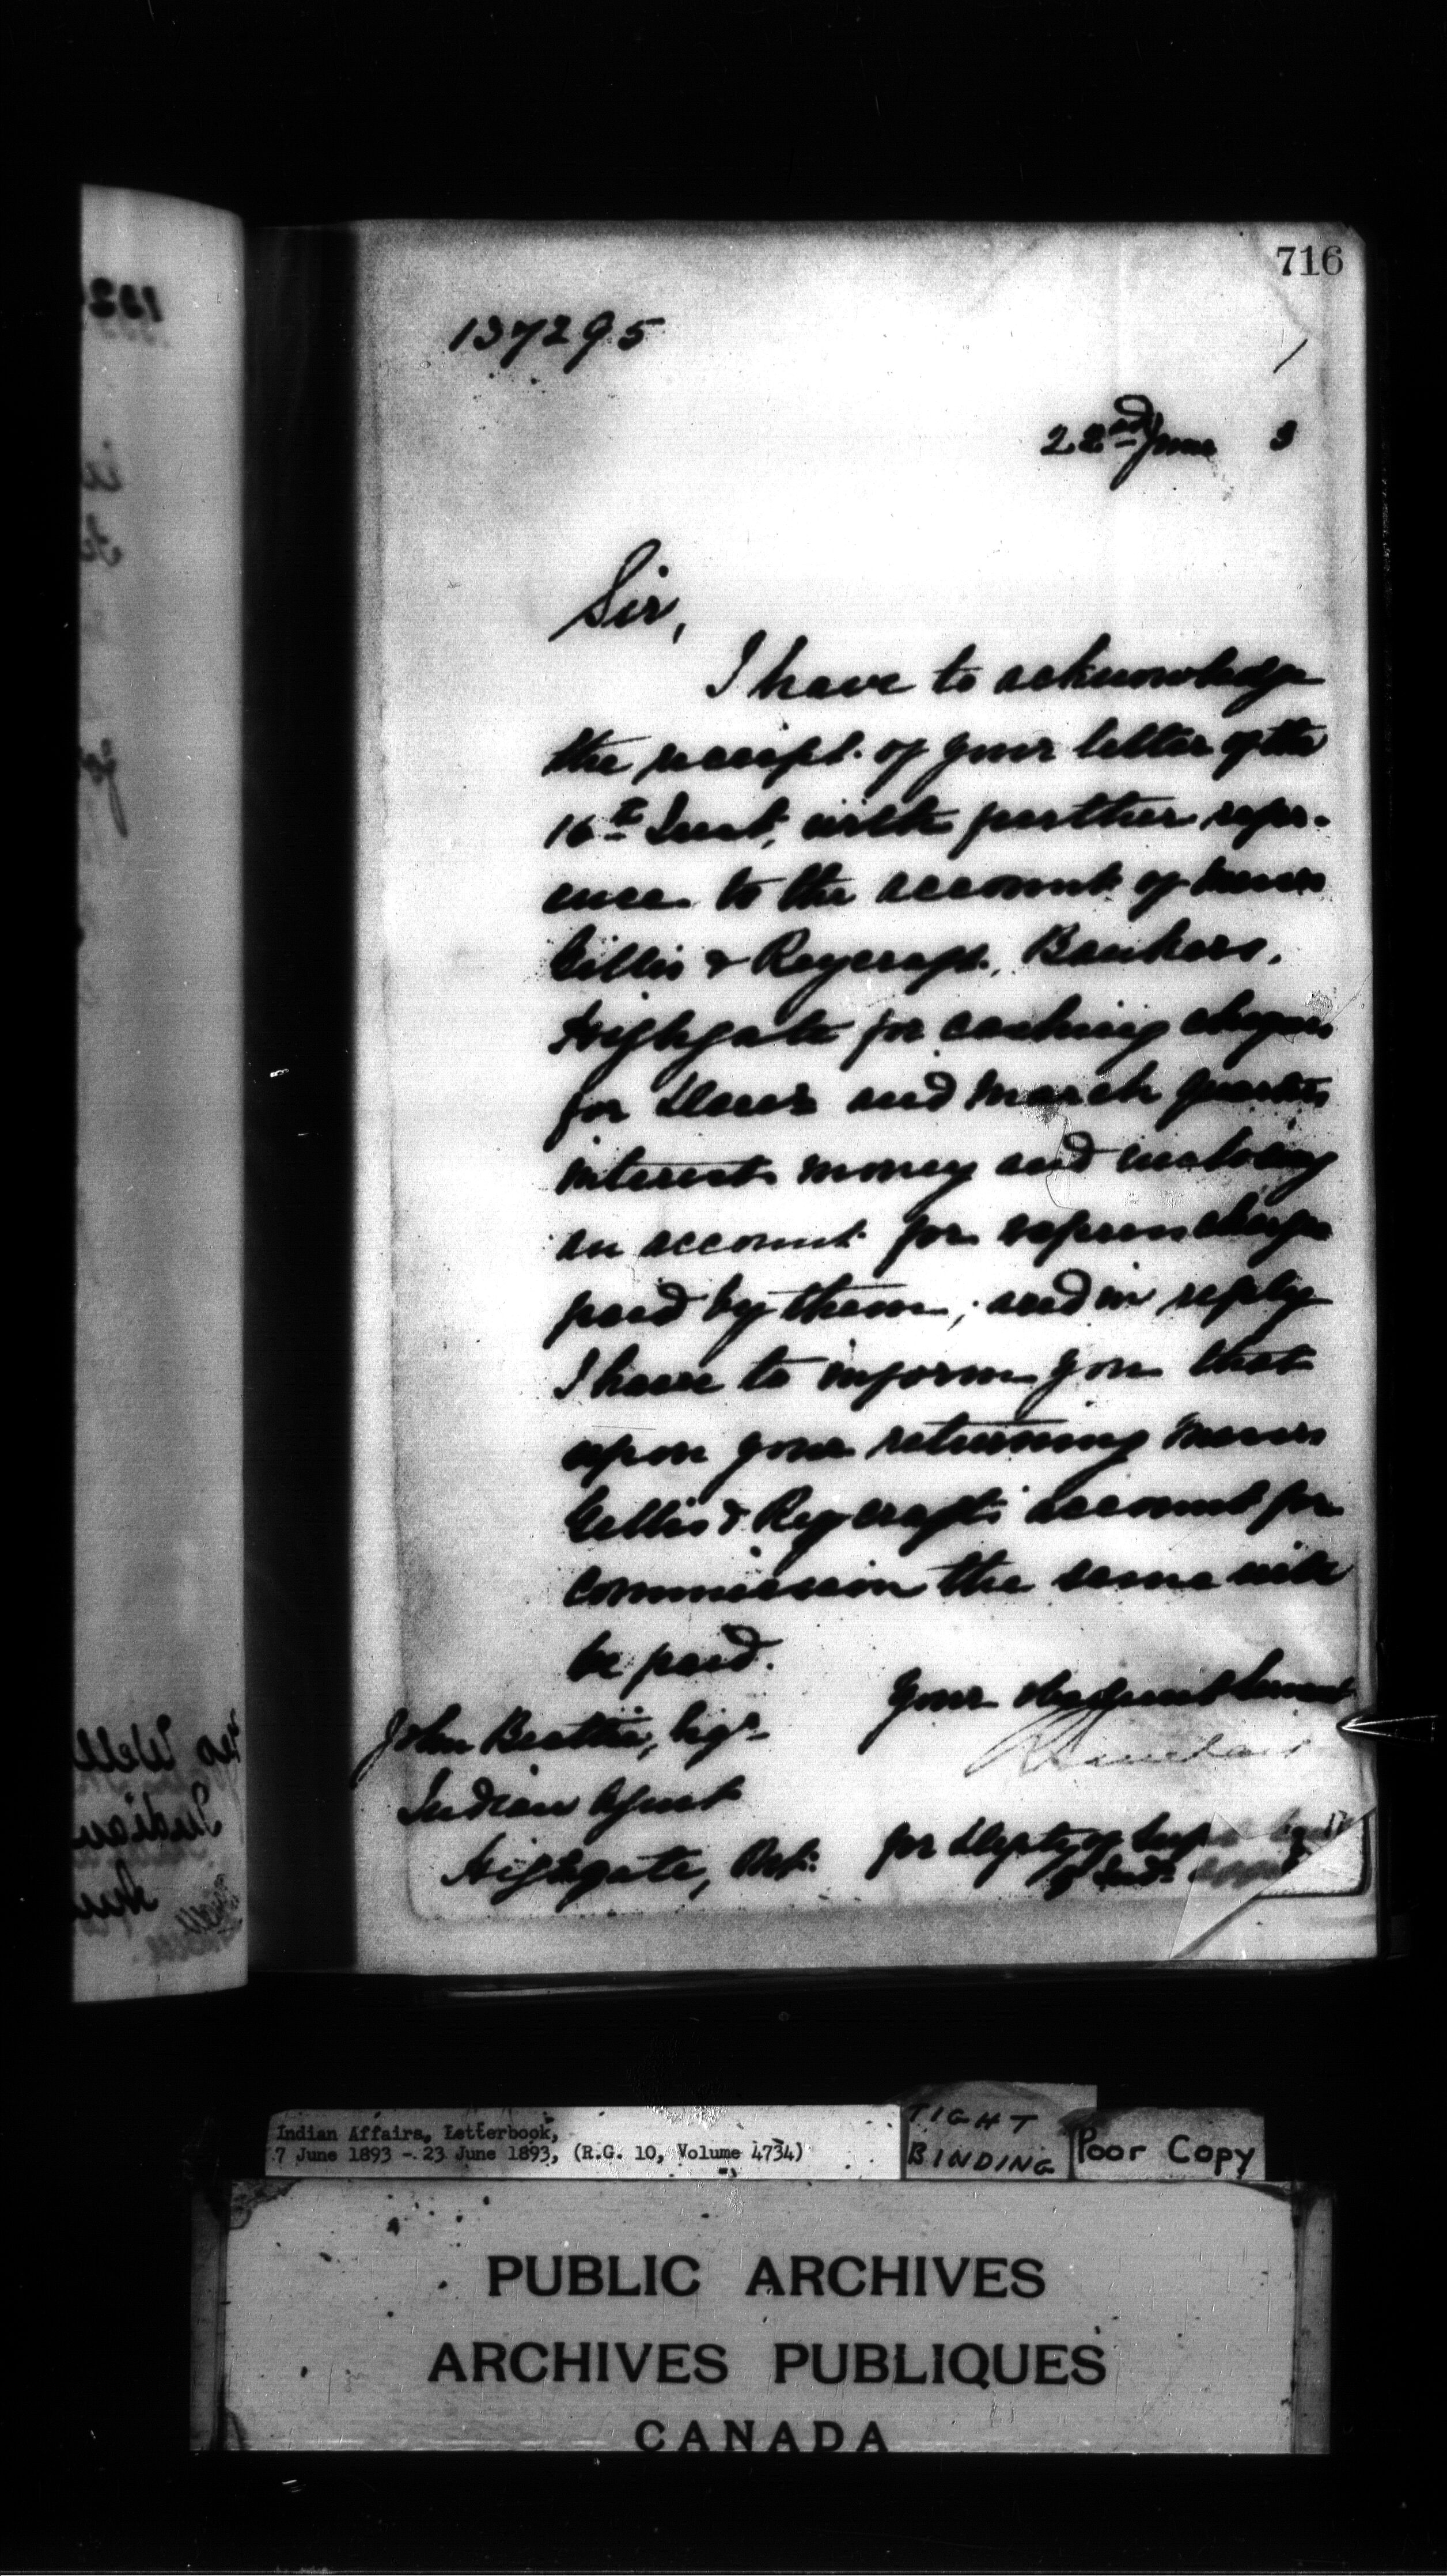 716
137295
22nd June 3
Sir,
I have to acknowledge
the receipt of your letter of the
16th Inst, with further refer-
ence to the account of Messrs
Gillis & Reycraft, Bankers,
Highgate for cashing cheques
for Decr and March quarters
interest money and enclosing
an account for express charges
paid by them; and in reply
I have to inform you that
upon your returning Messrs
Gillis & Reycraft's account for
commission the same will
be paid.
Your obedient Servant
John Beattie, Esqr
Indian Agent
Highgate, Ont:
for Depty of Supt
of Ind:
Indian Affairs, Letterbook,
7 June 1893 - 23 June 1893, (R.G. 10, Volume 4734)
TIGHT
BINDING
Poor Copy
PUBLIC ARCHIVES
ARCHIVES PUBLIQUES
CANADA